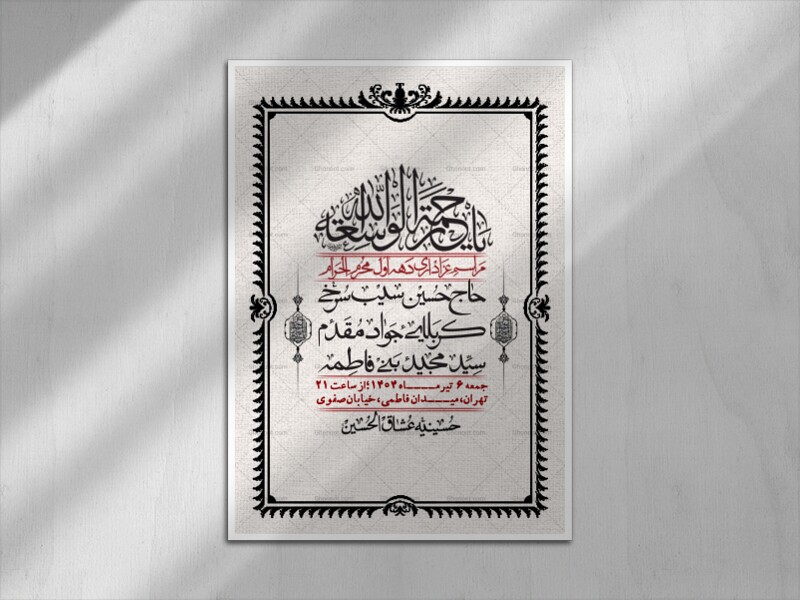 یا رحمة الله الواسعة
مراسم عزاداری دهه اول محرم الحرام
حاج حسین سیب سرخی
کربلایی جواد مقدم
سید مجید بنی فاطمه
جمعه ۶ تیرمـــاه ۱۴۰۴؛ از ساعت ۲۱
تهران، میـــدان فاطمی، خیابان صفوی
حسینیه عشاق الحسین